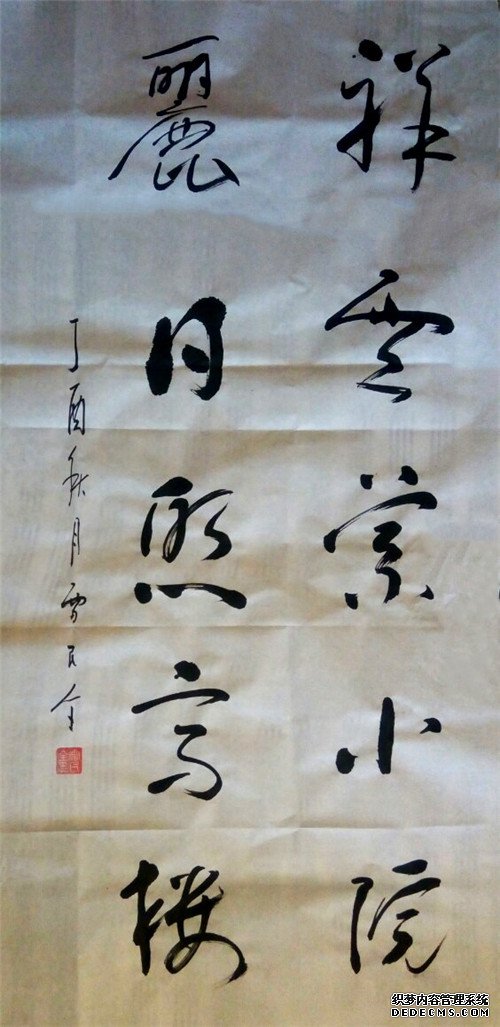 祥云萦小院
麗日照高楼
丁酉秋月雷百全
织梦内容管理系统
DEDECMS.COM